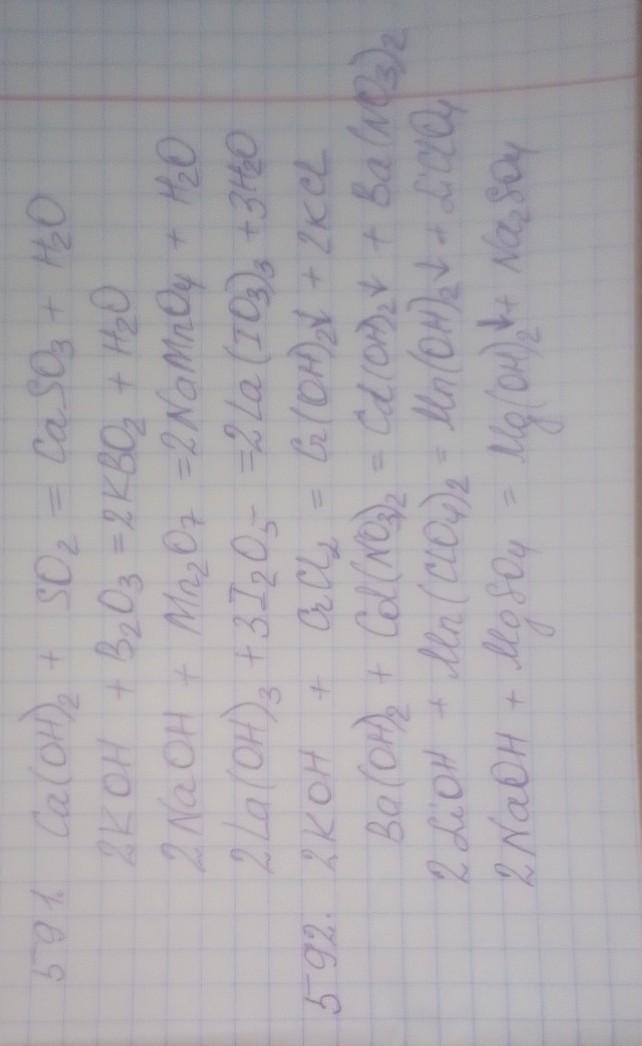 591. Ca(OH)₂ + SO₂ = CaSO₃ + H₂O
2KOH + B₂O₃ = 2KBO₂ + H₂O
2NaOH + Mn₂O₇ = 2NaMnO₄ + H₂O
2La(OH)₃ + 3I₂O₅ = 2La(IO₃)₃ + 3H₂O
592. 2KOH + CrCl₂ = Cr(OH)₂↓ + 2KCl
Ba(OH)₂ + Cd(NO₃)₂ = Cd(OH)₂↓ + Ba(NO₃)₂
2LiOH + Mn(ClO₄)₂ = Mn(OH)₂↓ + LiClO₄
2NaOH + MgSO₄ = Mg(OH)₂↓ + Na₂SO₄